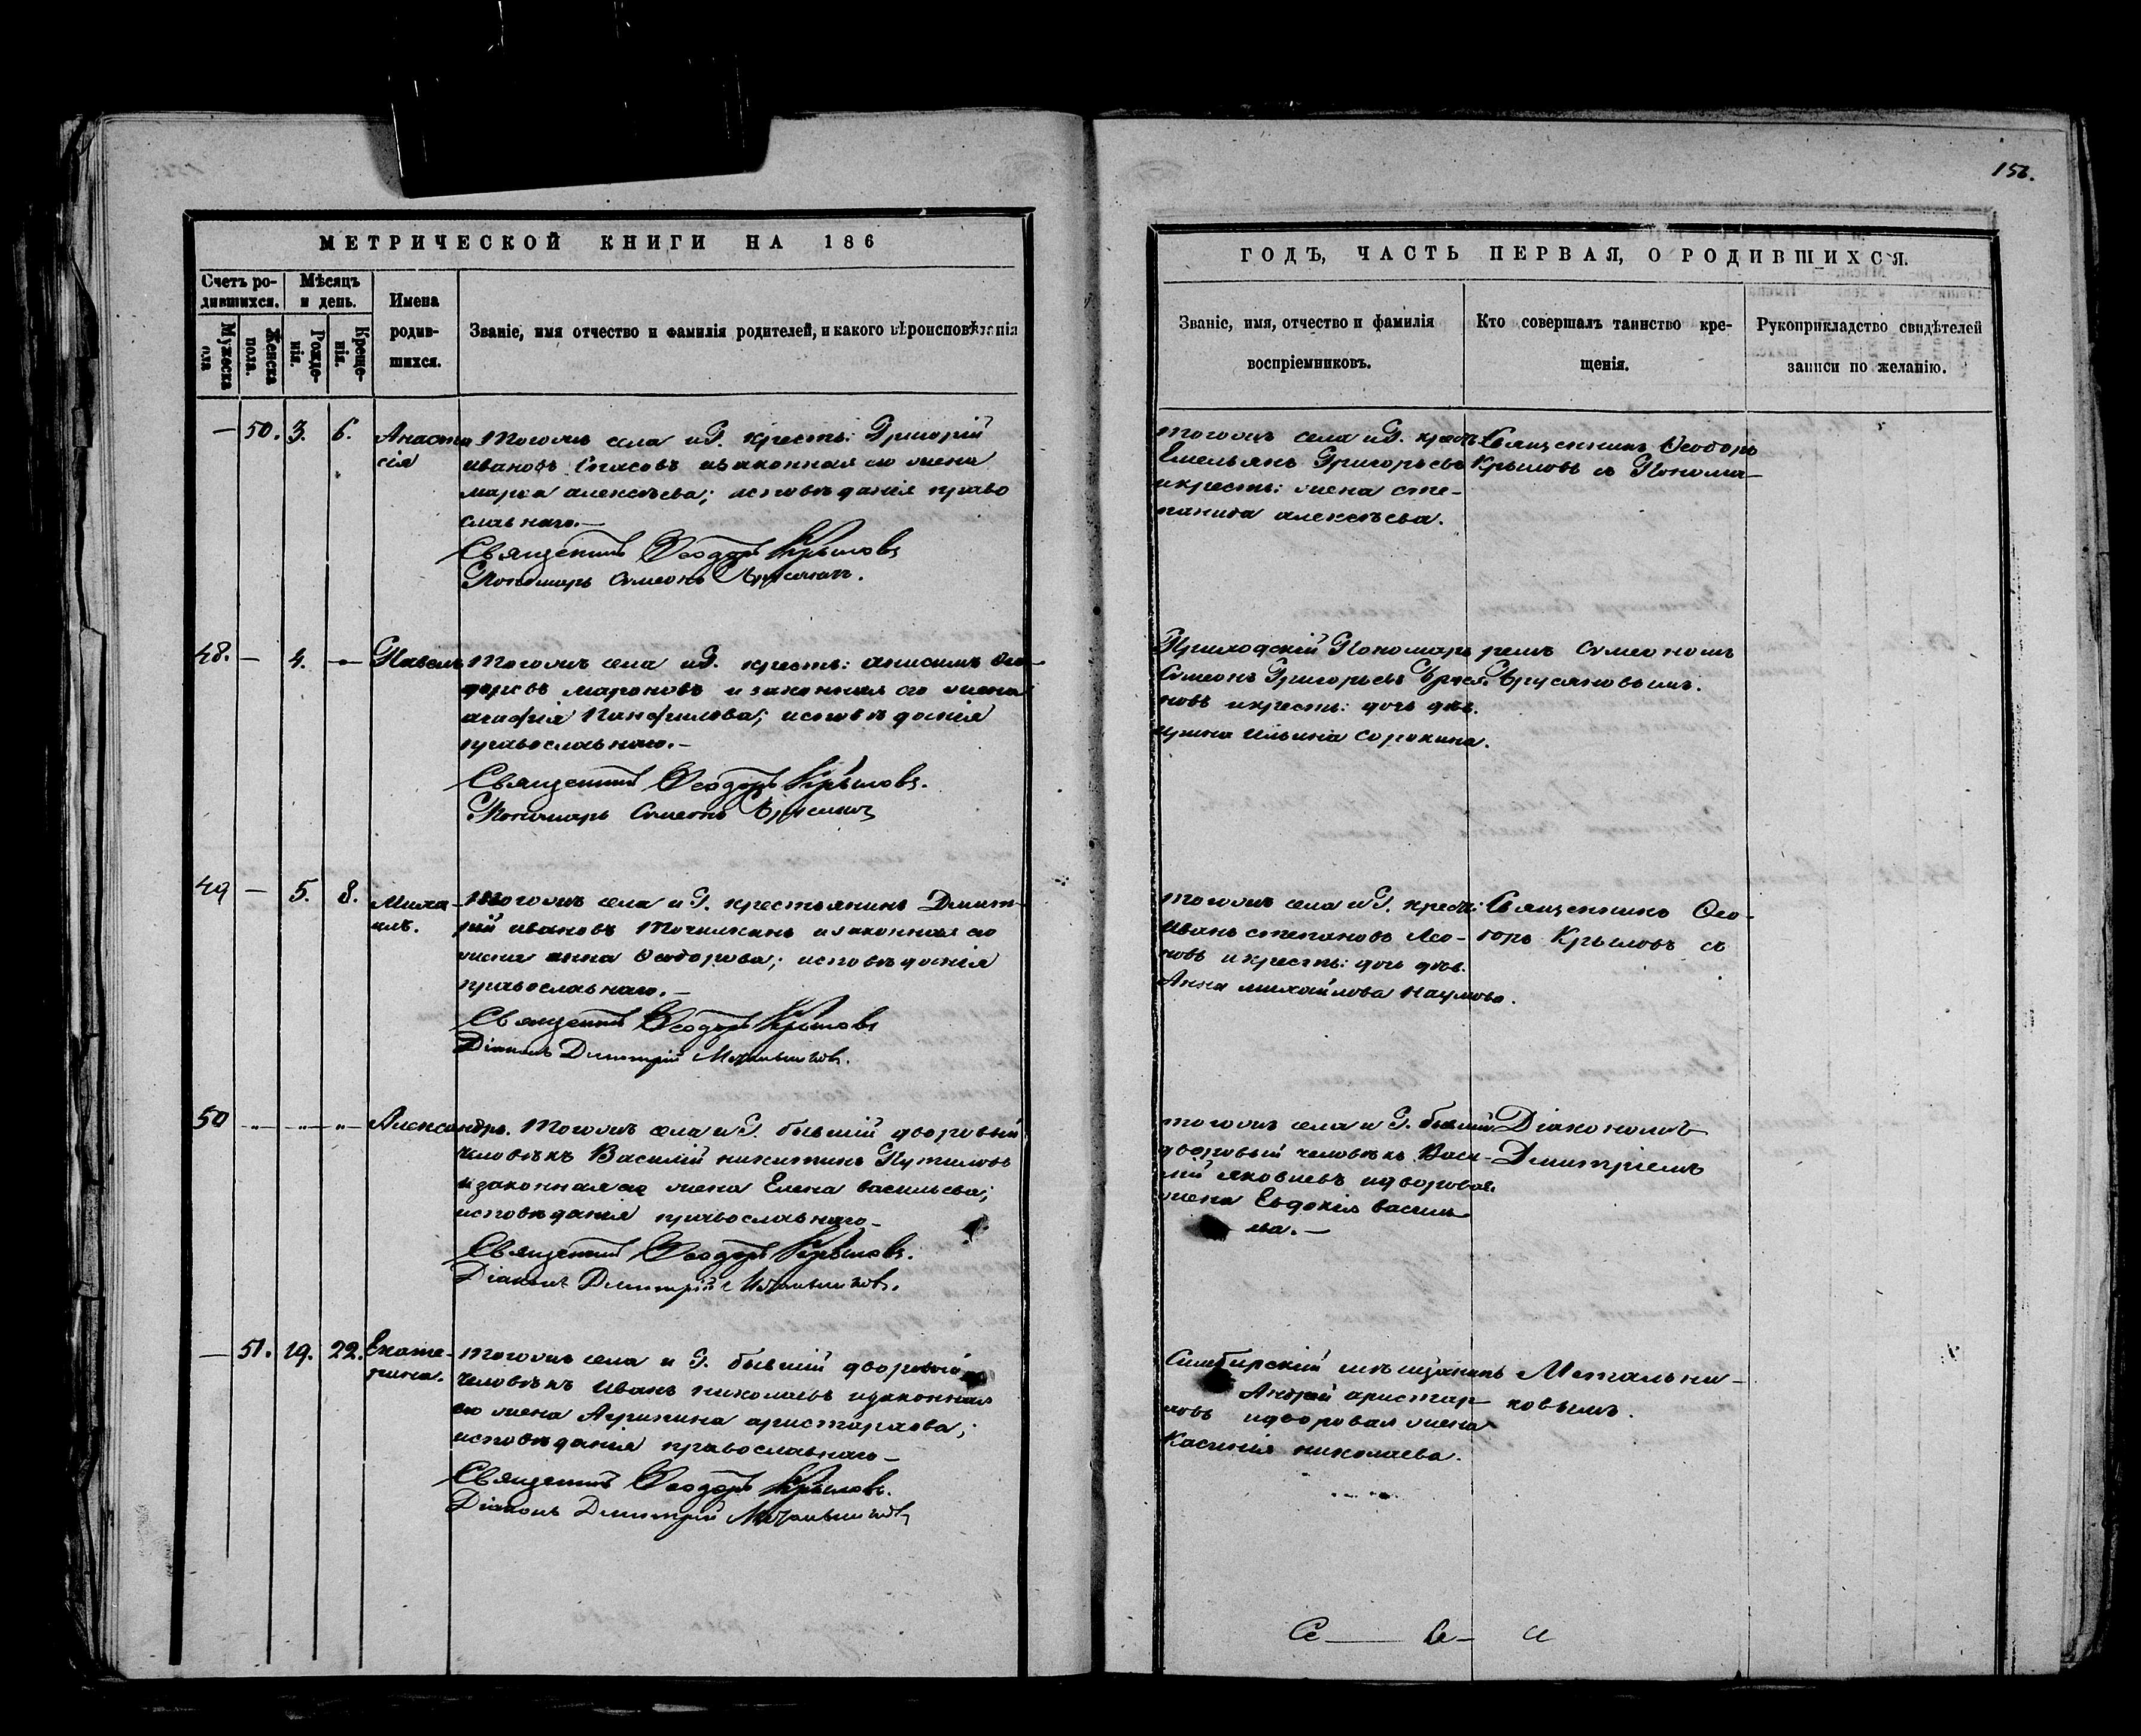 156.
МЕТРИЧЕСКОЙ КНИГИ НА 186
Счетъ ро-
дившихся.
Мѣсяцъ
и день.
Мужеска
пола
Женска
пола.
Рожде-
нія.
Креще-
нія.
Имена
родив-
шихся.
Званіе, имя отчество и фамилія родителей, и какого вѣроисповѣданія
— 50. 3. 6.
Анаста
сія
Тогожъ села и Г. кресть: Григорій
Ивановъ Спасовъ изаконная ею жена
Марѳа алексѣева; исповѣданія право
славнаго.—
Священникъ Ѳеодоръ Крыловъ
Пономарь Симеонъ
48. — 4. —
Павелъ
Тогожъ села и Г. кресть: анисимъ Ѳео-
доровъ Мароновъ и законная его жена
агафія Панфилова; исповѣданія
православнаго.—
Священникъ Ѳеодоръ Крыловъ.
Пономарь Симеонъ
49 — 5. 8.
Миха-
илъ.
Тогожъ села и Г. крестьянинъ Дмит-
рій ивановъ Точилкинъ изаконная ею
жена анна Ѳеодорова; исповѣданія
православнаго.—
Священникъ Ѳеодоръ Крыловъ
Діаконъ Димитрій Метальниковъ.
50 -„- -„- -„-
Александръ.
Тогожъ села и Г. бывшій дворовый
человѣкъ Василій никитинъ Путиловъ
и законная ею жена Елена васильева;
исповѣданія православнаго—
Священникъ Ѳеодоръ Крыловъ.
Діаконъ Димитрій Метальниковъ.
— 51. 19. 22.
Екате-
рина.
Тогожъ села и Г. бывшій дворовый
человѣкъ Иванъ николаевъ изаконная
ею жена Агрипина аристархова;
исповѣданія православнаго—
Священникъ Ѳеодоръ Крыловъ.
Діаконъ Димитрій Метальниковъ
ГОДЪ, ЧАСТЬ ПЕРВАЯ, О РОДИВШИХСЯ.
Званіе, имя, отчество и фамилія
воспріемниковъ.
Кто совершалъ таинство кре-
щенія.
Рукоприкладство свидѣтелей
записи по желанію.
Тогожъ села и Г. крест:
Емельянъ Григорьевъ
икресть: жена сте-
панида алексѣева.
Священникъ Ѳеодоръ
Крыловъ съ Понома-
Приходскій Пономарь
Симеонъ Григорьевъ
новъ икресть: дочь дѣв.
ирина Ильина Сорокина.
ремъ Симеономъ
Тогожъ села и Г. крест:
Иванъ степановъ Лео-
новъ икресть: дочь дѣв.
Анна михайлова Наумова.
Священникъ Ѳео-
доръ Крыловъ съ
Тогожъ села и Г. бывшій
дворовый человѣкъ Васи-
лій яковлевъ идворовая
жена Евдокія василь
ева.—
Діакономъ
Димитріемъ
Симбирскій мѣщанинъ
Андрей аристар-
ховъ идворовая жена
Касинія николаева.
Метальни-
ковымъ.